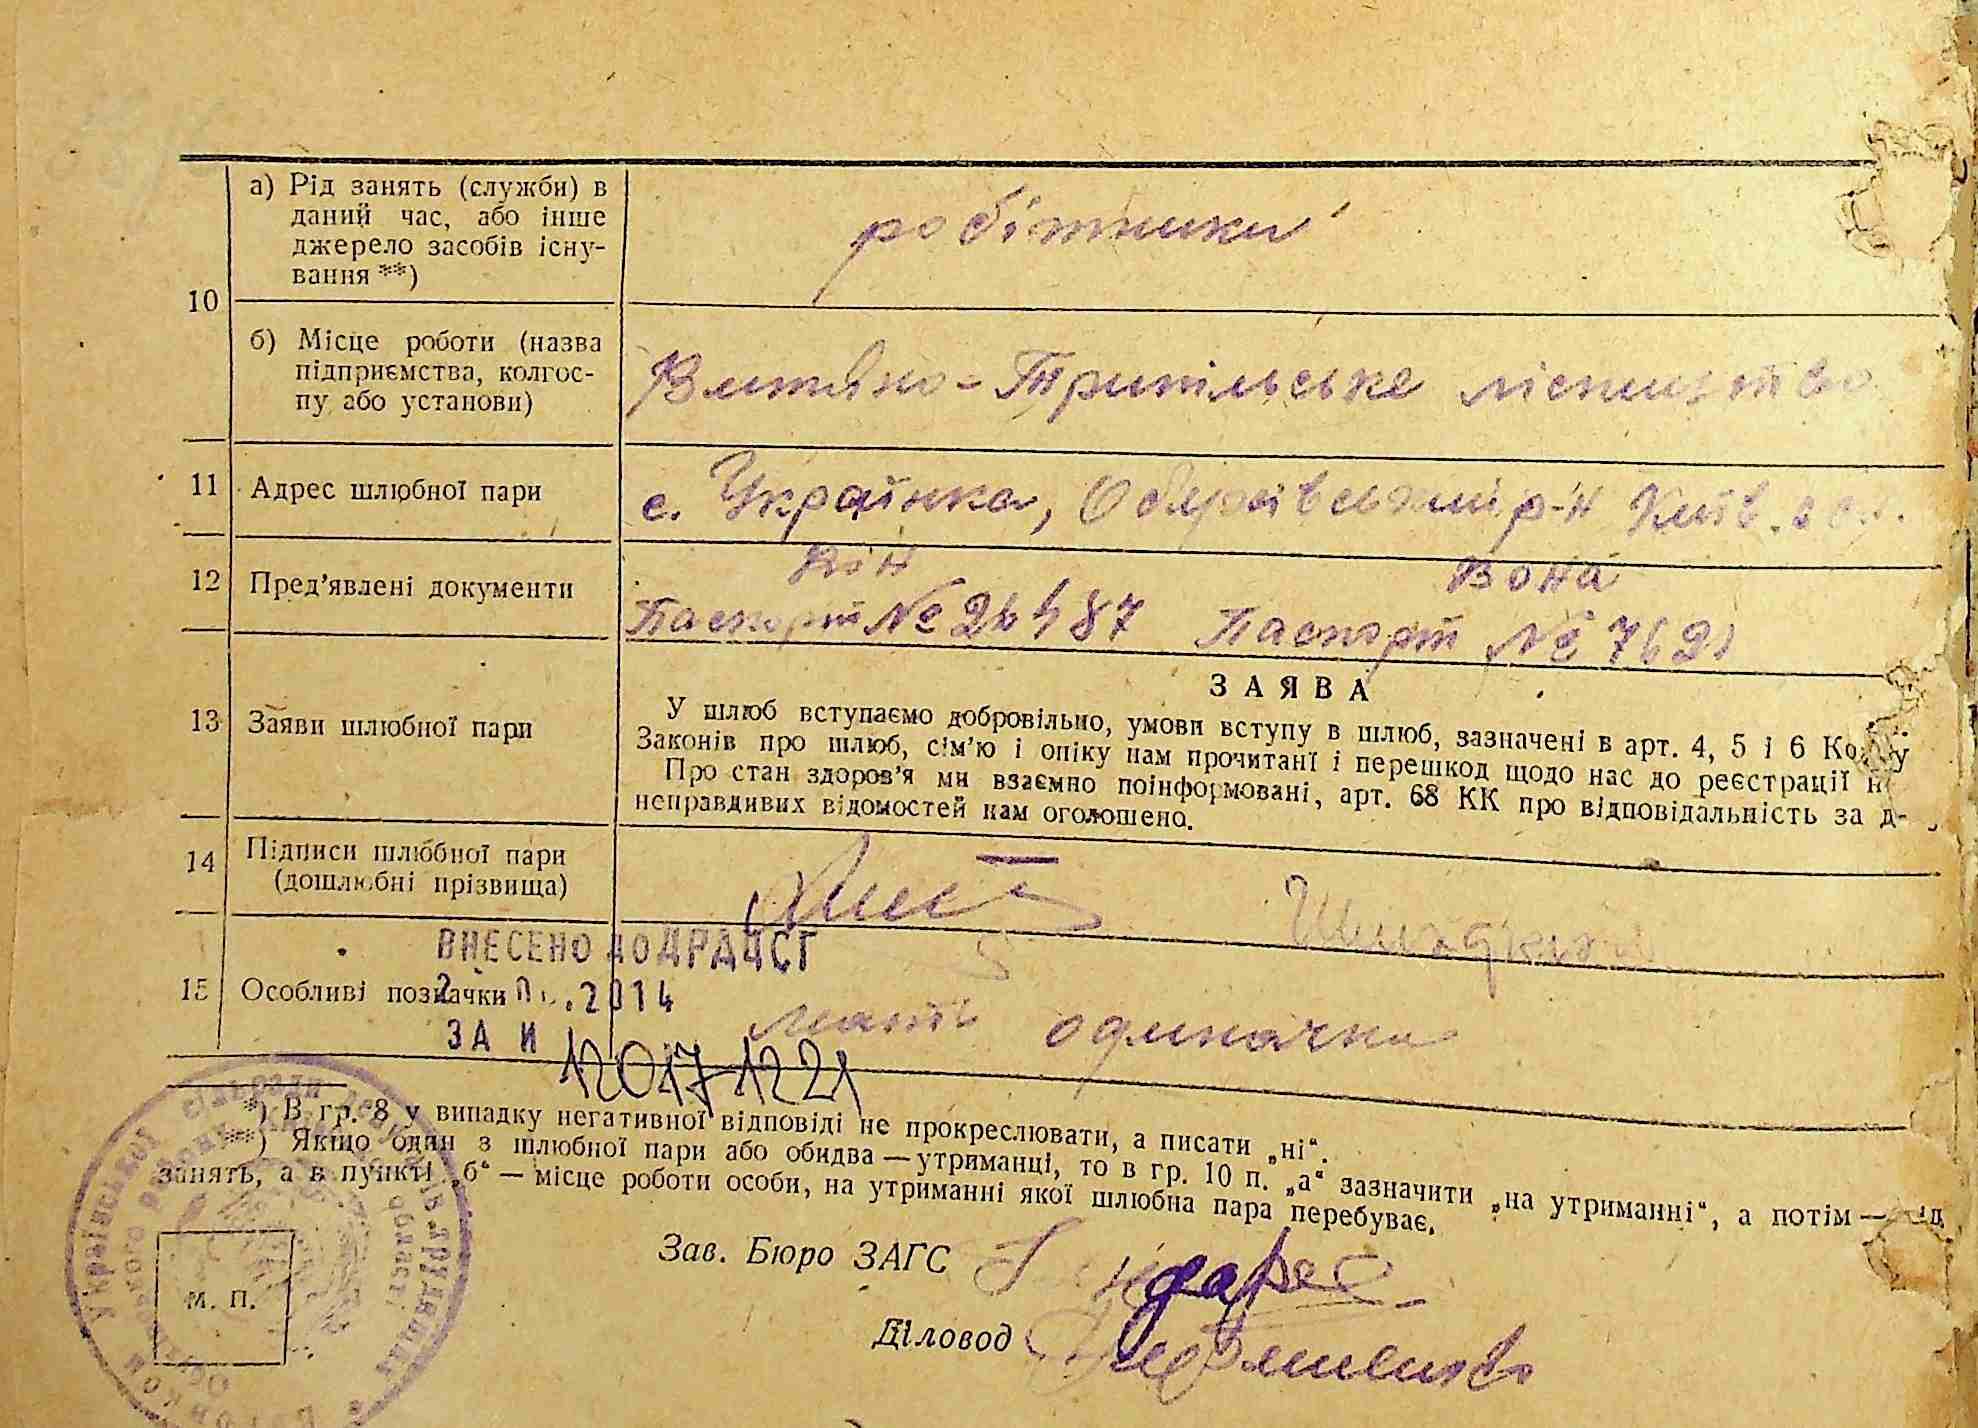 10
а) Рід занять (служби) в
даний час, або інше
джерело засобів існу-
вання **)
робітники
б) Місце роботи (назва
підприємства, колгос-
пу або установи)
Трипільське лісництво
11 Адрес шлюбної пари
с. Українка, Обухівський р-н Київ. обл.
Він Вона
12 Пред'явлені документи
Паспорт № Паспорт №
ЗАЯВА
13 Заяви шлюбної пари
У шлюб вступаємо добровільно, умови вступу в шлюб, зазначені в арт. 4, 5 і 6 Кодексу
Законів про шлюб, сім'ю і опіку нам прочитані і перешкод щодо нас до реєстрації н
Про стан здоров'я ми взаємно поінформовані, арт. 68 КК про відповідальність за д-
неправдивих відомостей нам оголошено.
14 Підписи шлюбної пари
(дошлюбні прізвища)
ВНЕСЕНО ДО ДРАЦСГ
15 Особливі позначки
2014
мати одиначка
ЗА И 12017-1221
*) В гр. 8 у випадку негативної відповіді не прокреслювати, а писати „ні“.
**) Якщо один з шлюбної пари або обидва — утриманці, то в гр. 10 п. „а“ зазначити „на утриманні“, а потім — рід
занять, а в пункті „б“ — місце роботи особи, на утриманні якої шлюбна пара перебуває.
Зав. Бюро ЗАГС
Діловод
м. П.
Української сільради депутатів трудящих
області